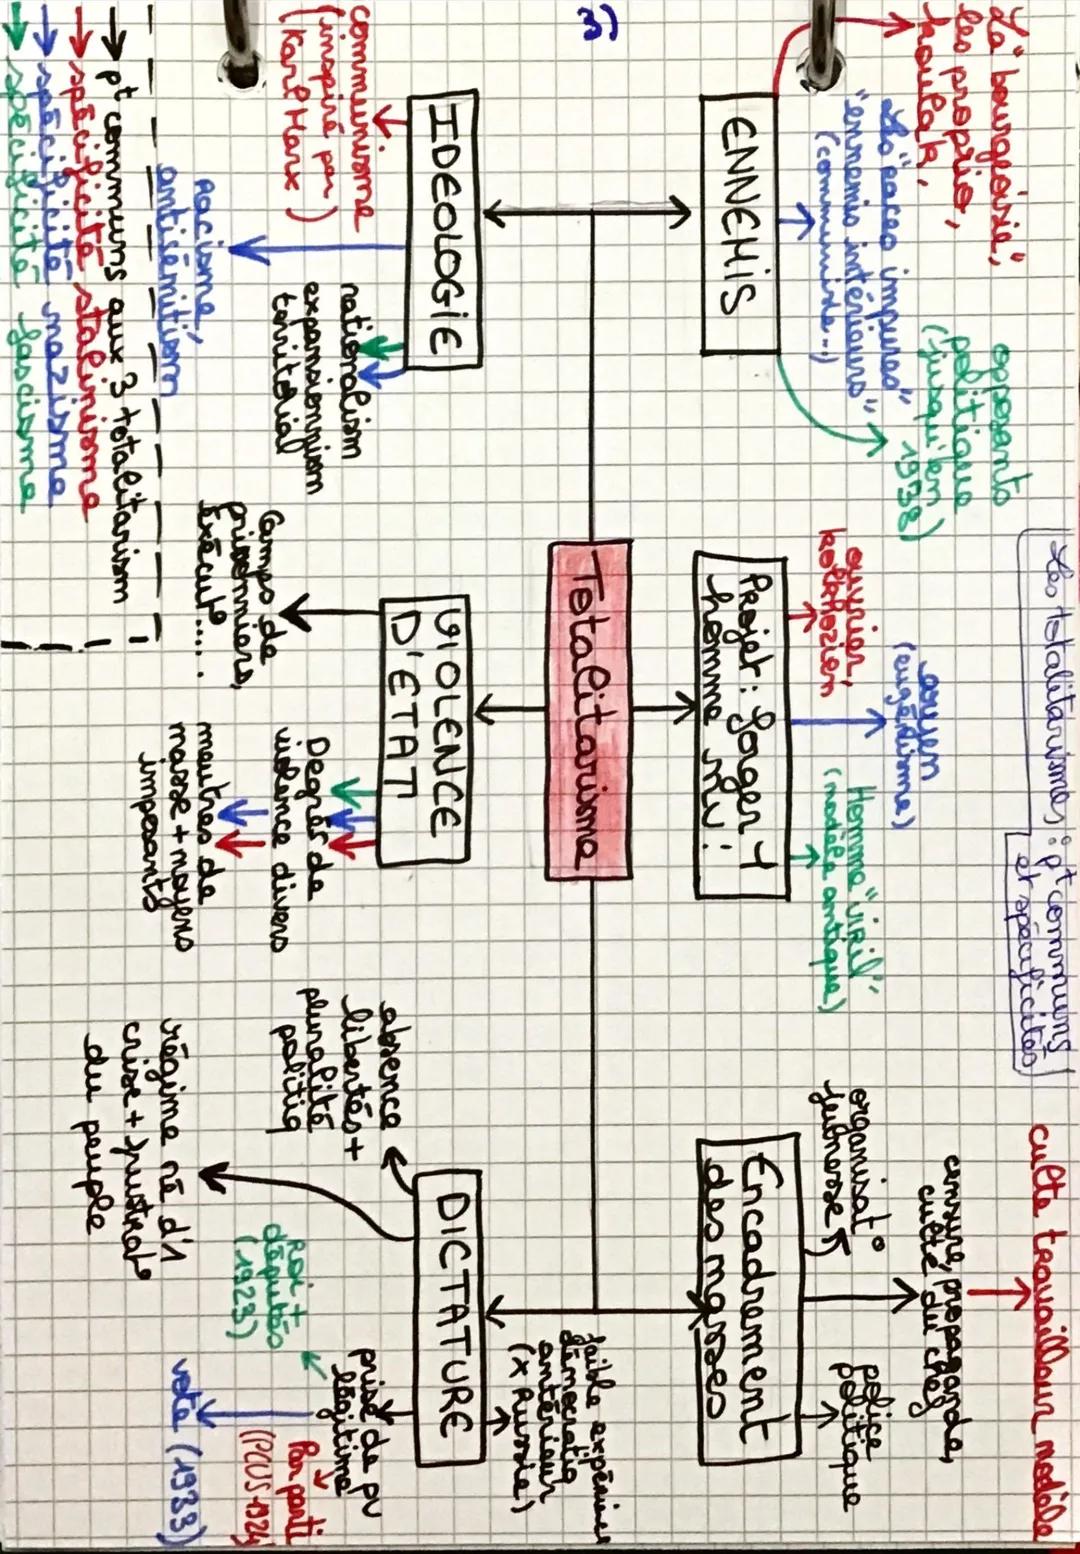 3)
Les totalitarismes : pt communs
et spécificités
La "bourgeoisie",
les proprio,
koulak,
Les "races impures"
"ennemis intérieurs"
(communiste...)
opposants
politique
(jusqu'en
1938)
ENNEMIS
ouvrier,
kolkhozien
aryen
(eugénisme)
Homme "viril"
(modèle antique)
Projet : forger 1
homme nv :
culte travailleur modèle
censure, propagande,
culte du chef
organisat°
jeunesse
police
politique
Encadrement
des masses
Totalitarisme
IDEOLOGIE
communisme
(inspiré par
Karl Marx)
racisme,
antisémitism
nationalism
expansionnism
territorial
VIOLENCE
D'ETAT
Camps de
prisonniers,
Exécut°....
Degrés de
violence divers
meutres de
masse + moyens
imposants
DICTATURE
absence
libertés +
pluralité
politiq
régime né d'1
crise + frustrat°
du peuple
faible expérience
démocratiq
antérieur
(x Russie)
prise de pv
légitime
Roi +
députés
(1923)
vote (1933)
Par parti
(PCUS 1924
→ pt communs aux 3 totalitarism
→ spécificité stalinisme
→ spécificité nazisme
→ spécificité fascisme